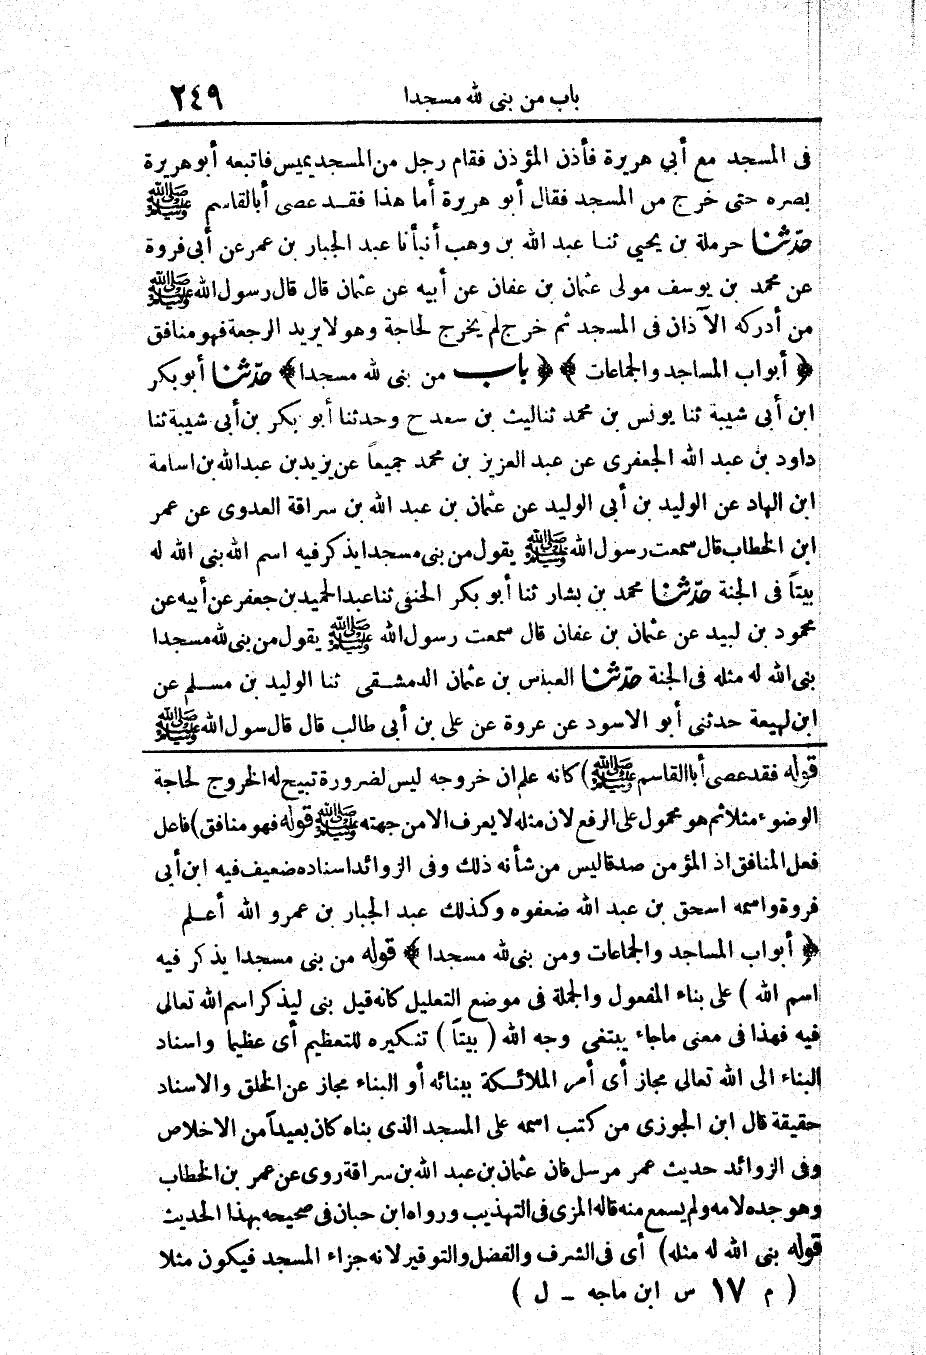 باب من بنى لله مسجدا ٢٤٩
فى المسجد مع أبي هريرة فأذن المؤذن فقام رجل من المسجد يميس فاتبعه أبو هريرة
بصره حتى خرج من المسجد فقال أبو هريرة أما هذا فقد عصى أبا القاسم ﷺ
حدّثنا حرملة بن يحيي ثنا عبد الله بن وهب أنبأنا عبد الجبار بن عمر عن أبى فروة
عن محمد بن يوسف مولى عثمان بن عفان عن أبيه عن عثمان قال قال رسول الله ﷺ
من أدركه الآذان فى المسجد ثم خرج لم يخرج لحاجة وهو لا يريد الرجعة فهو منافق
﴿ أبواب المساجد والجماعات ﴾ ﴿ باب من بنى لله مسجدا ﴾ حدّثنا أبو بكر
ابن أبى شيبة ثنا يونس بن محمد ثنا ليث بن سعد ح وحدثنا أبو بكر بن أبى شيبة ثنا
داود بن عبد الله الجعفرى عن عبد العزيز بن محمد جميعاً عن يزيد بن عبد الله بن اسامة
ابن الهاد عن الوليد بن أبى الوليد عن عثمان بن عبد الله بن سراقة العدوى عن عمر
ابن الخطاب قال سمعت رسول الله ﷺ يقول من بنى مسجدا يذكر فيه اسم الله بنى الله له
بيتاً فى الجنة حدّثنا محمد بن بشار ثنا أبو بكر الحنفى ثنا عبد الحميد بن جعفر عن أبيه عن
محمود بن لبيد عن عثمان بن عفان قال سمعت رسول الله ﷺ يقول من بنى لله مسجدا
بنى الله له مثله فى الجنة حدّثنا العباس بن عثمان الدمشقى ثنا الوليد بن مسلم عن
ابن لهيعة حدثنى أبو الاسود عن عروة عن على بن أبى طالب قال قال سول الله ﷺ
قوله فقد عصى أبا القاسم ﷺ) كانه علم ان خروجه ليس لضرورة تبيح له الخروج لحاجة
الوضوء مثلا ثم هو محمول على الرفع لان مثله لا يعرف الا من جهته ﷺ قوله فهو منافق) فاعل
فعل المنافق اذ المؤمن صدقا ليس من شأنه ذلك وفى الزوائد اسناده ضعيف فيه ابن أبى
فروة واسمه اسحق بن عبد الله ضعفوه وكذلك عبد الجبار بن عمرو الله أعلم
﴿ أبواب المساجد والجماعات ومن بنى لله مسجدا ﴾ قوله من بنى مسجدا يذكر فيه
اسم الله ) على بناء المفعول والجملة فى موضع التعليل كانه قيل بنى ليذكر اسم الله تعالى
فيه فهذا فى معنى ماجاء يبتغى وجه الله ( بيتاً ) تنكيره للتعظيم أى عظيما واسناد
البناء الى الله تعالى مجاز أى أمر الملائكة ببنائه أو البناء مجاز عن الخلق والاسناد
حقيقة قال ابن الجوزى من كتب اسمه على المسجد الذى بناه كان بعيداً من الاخلاص
وفى الزوائد حديث عمر مرسل فان عثمان بن عبد الله بن سراقة روى عن عمر بن الخطاب
وهو جده لامه ولم يسمع منه قاله المزى فى التهذيب ورواه ابن حبان فى صحيحه بهذا الحديث
قوله بنى الله له مثله) أى فى الشرف والفضل والتوقير لانه جزاء المسجد فيكون مثلا
( م ١٧ س ابن ماجه ـ ل )